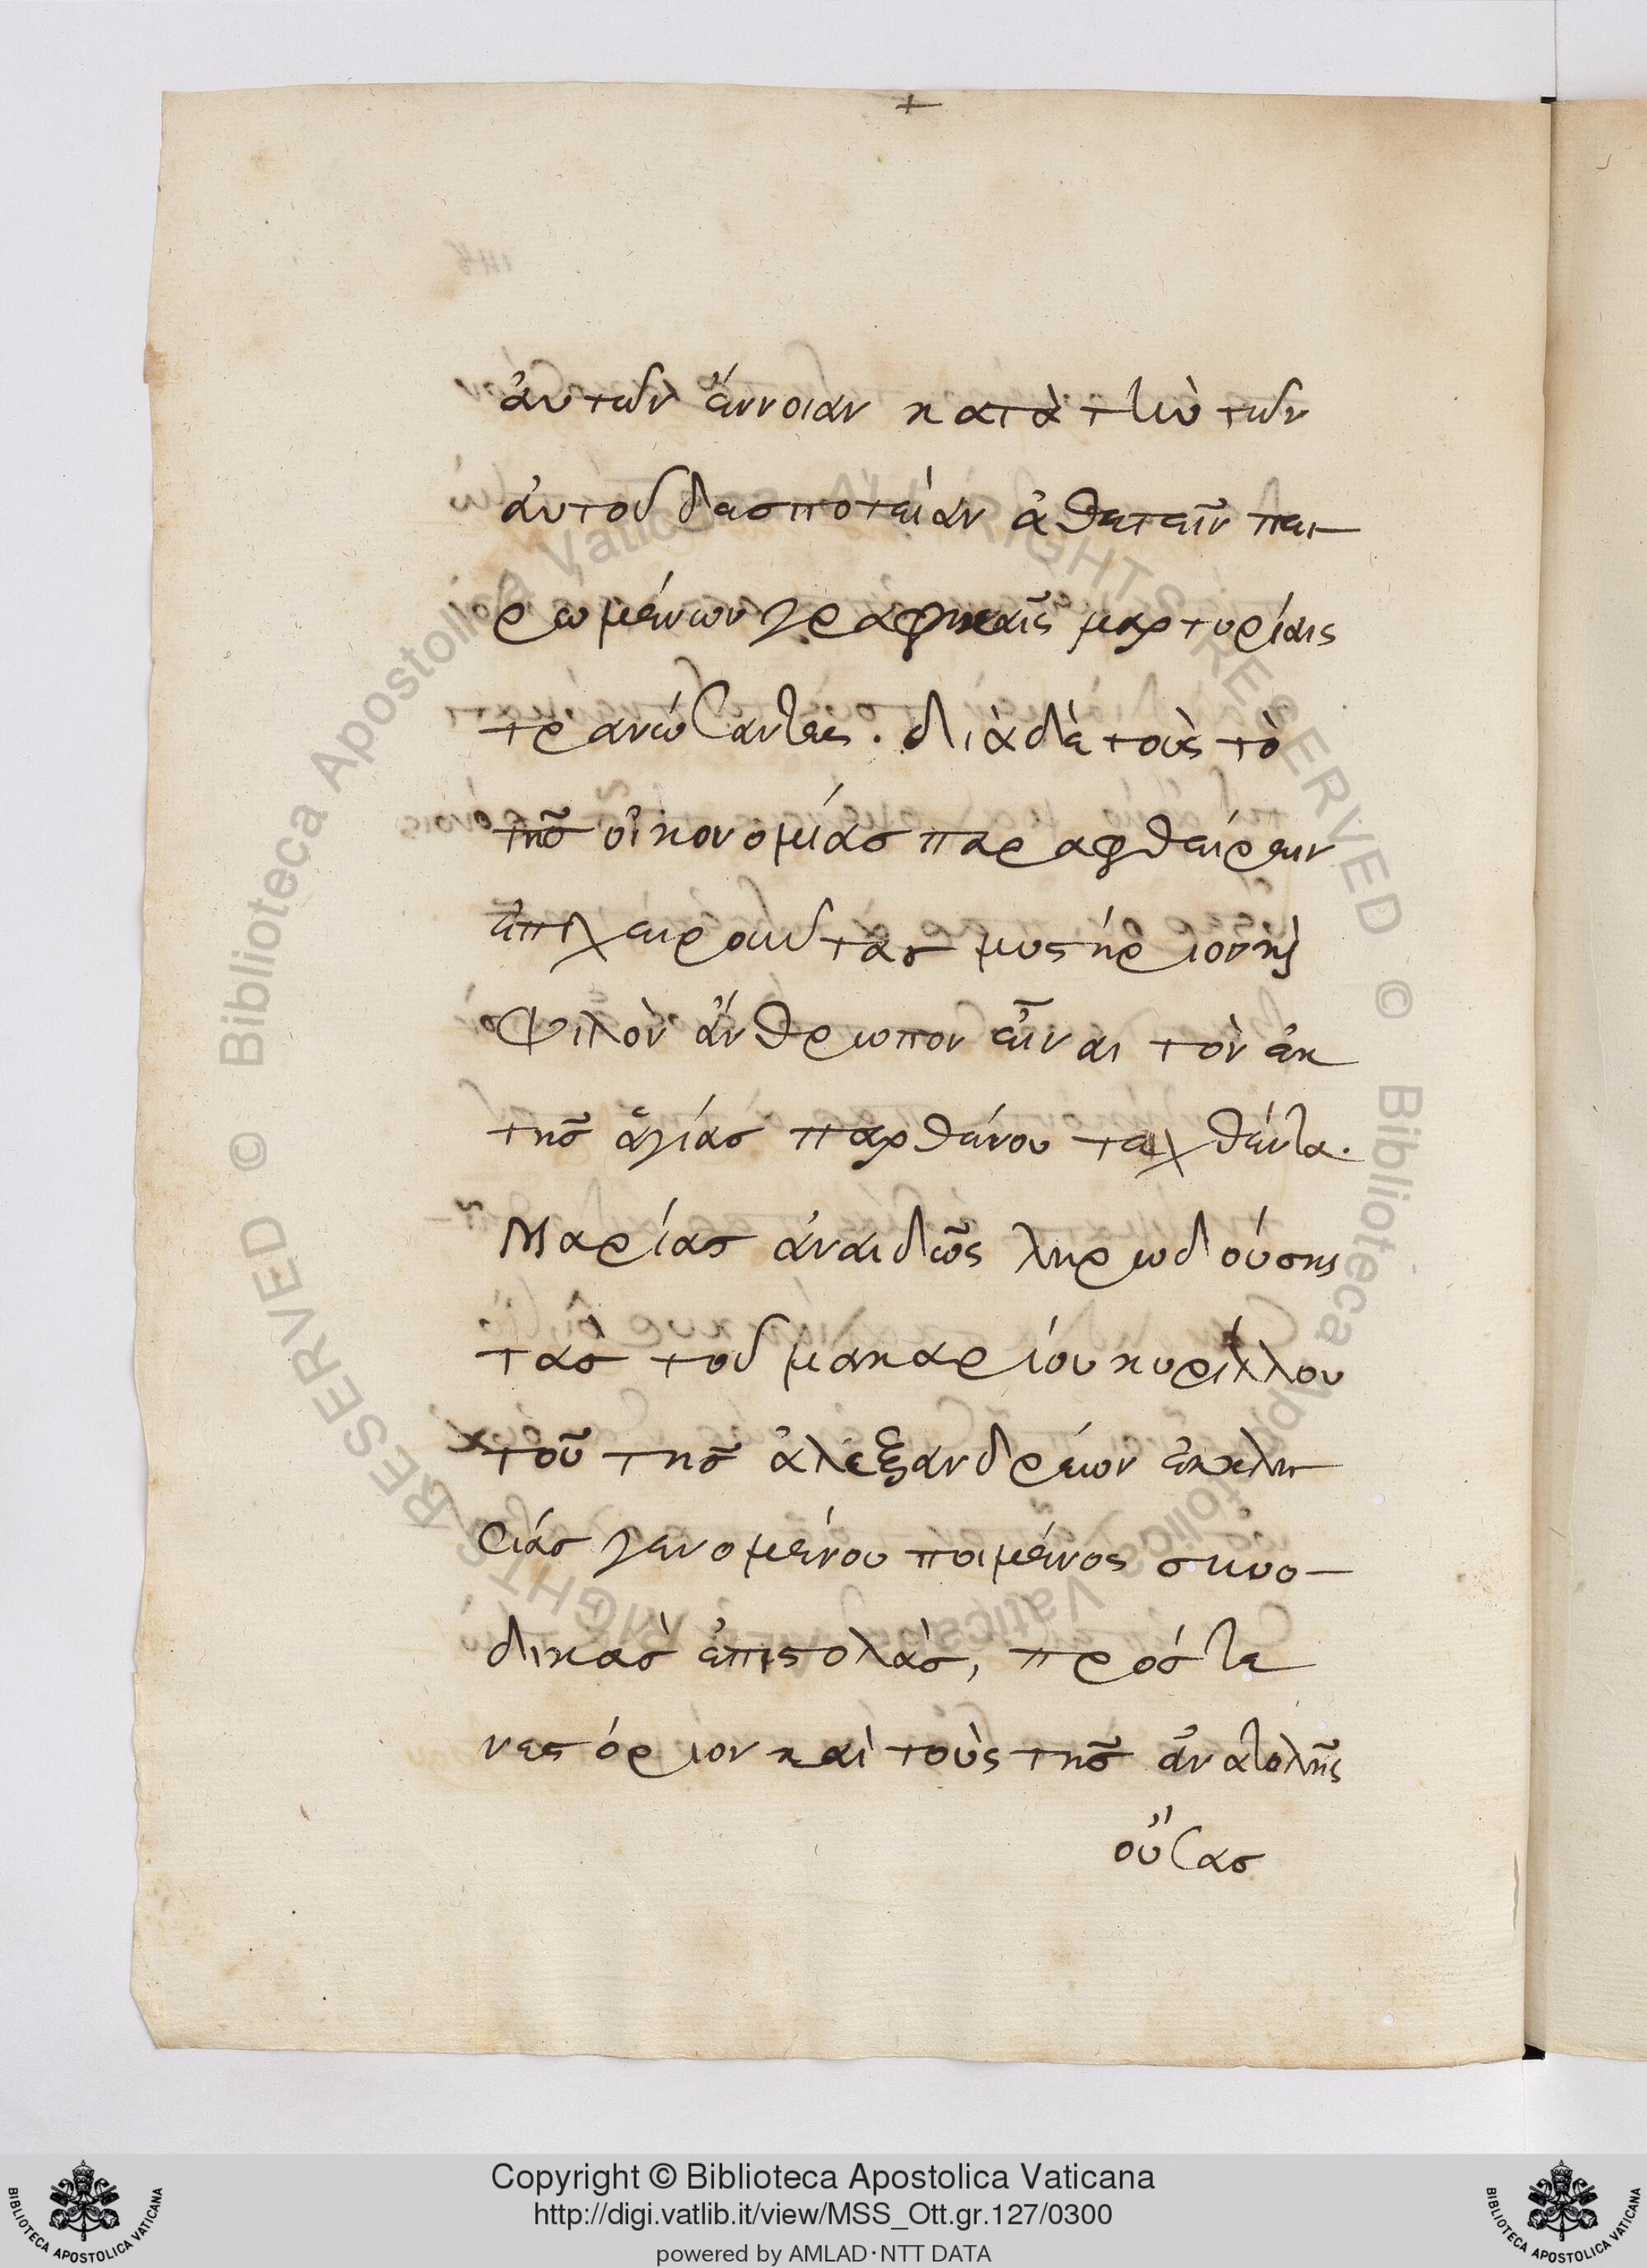 +
ἀυτῶν ἔννοιαν κατὰ τὴν τῶν
ἀυτοῦ δεσποτείαν ἀθετεῖν πει-
ρωμένων γραφικαῖς μαρτυρίαις
τρανώσαντες. διὰ δὲ τοὺς τὸ
τῆσ οἰκονομίασ παραφθείρειν
ἐπιχειροῦντασ μυστήριον καὶ
ψιλὸν ἄνθρωπον εἶναι τὸν ἐκ
τῆσ ἁγίασ παρθένου τεχθέντα.
Μαρίασ ἀναιδῶς ληρωδούσης
τὰσ τοῦ μακαρίου κυρίλλου
τοῦ τῆσ ἀλεξανδρέων ἐκκλη-
σίασ γενομένου ποιμένος συνο-
δικασ ἐπιστολὰσ, πρόσ τε
νεστόριον καὶ τοὺς τῆσ ἀνατολῆς
οὔσασ
Copyright © Biblioteca Apostolica Vaticana
http://digi.vatlib.it/view/MSS_Ott.gr.127/0300
powered by AMLAD·NTT DATA
BIBLIOTECA APOSTOLICA VATICANA
BIBLIOTECA APOSTOLICA VATICANA
© Biblioteca Apostolica Vaticana ALL RIGHTS RESERVED
© Biblioteca Apostolica Vaticana ALL RIGHTS RESERVED